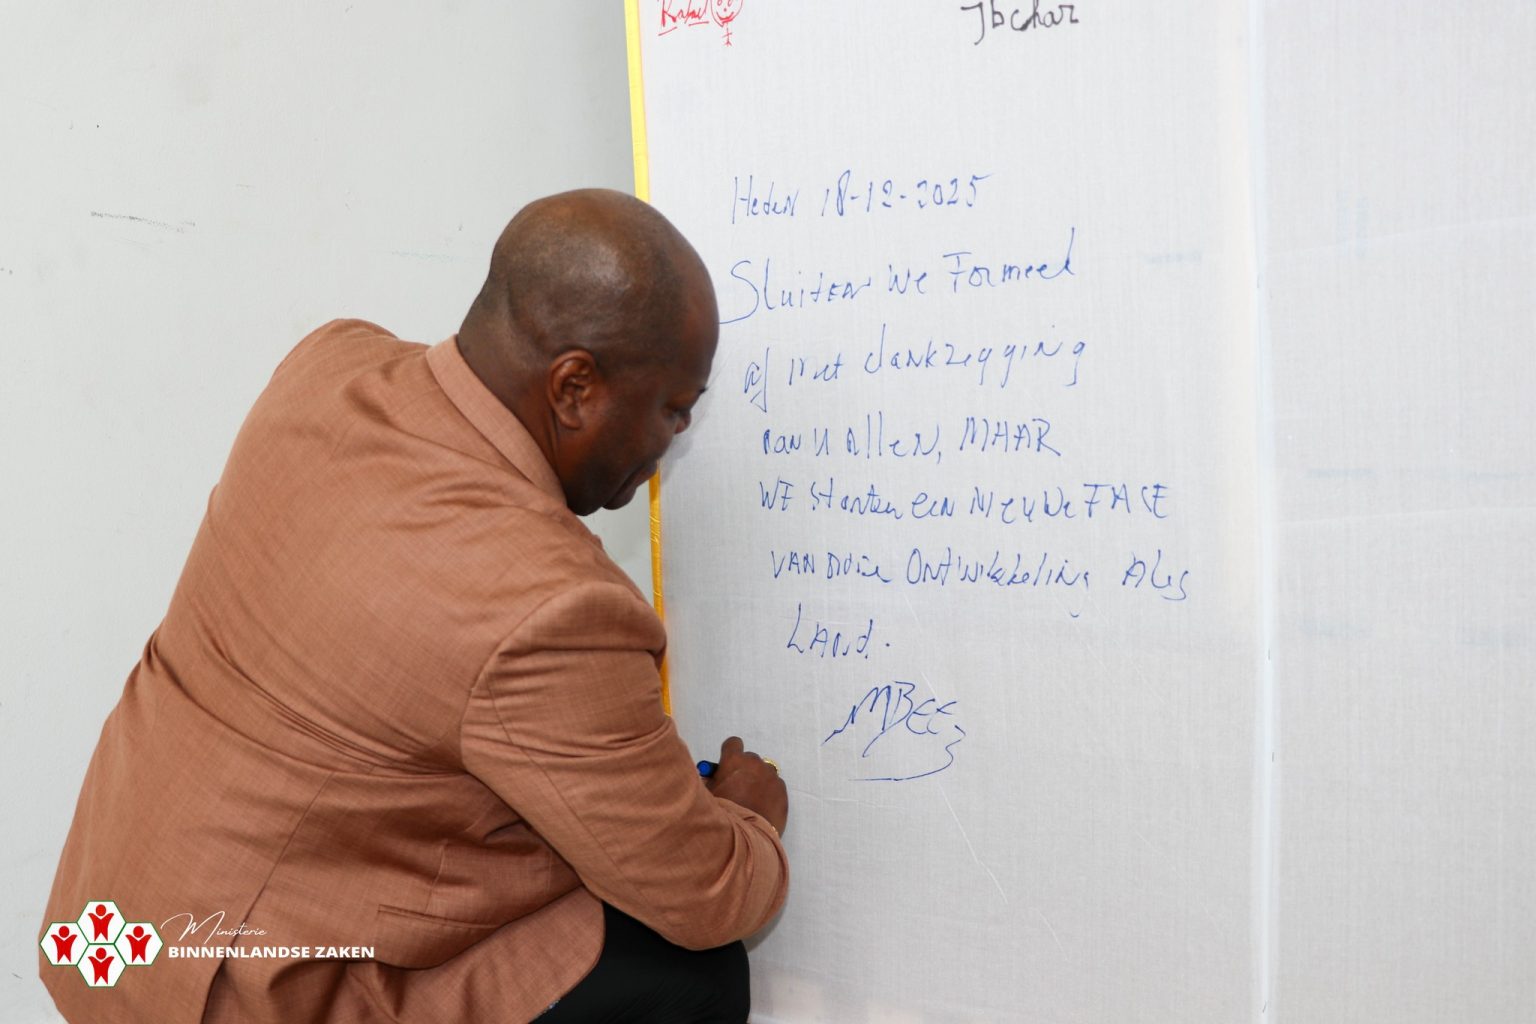 Rafael
Jbchar
Heden 18-12-2025
Sluiten we Formeel
af met dankzegging
aan u Allen, MAAR
WE starten een Nieuwe FASE
VAN onze Ontwikkeling Als
LAnd.
MBEE
Ministerie
BINNENLANDSE ZAKEN